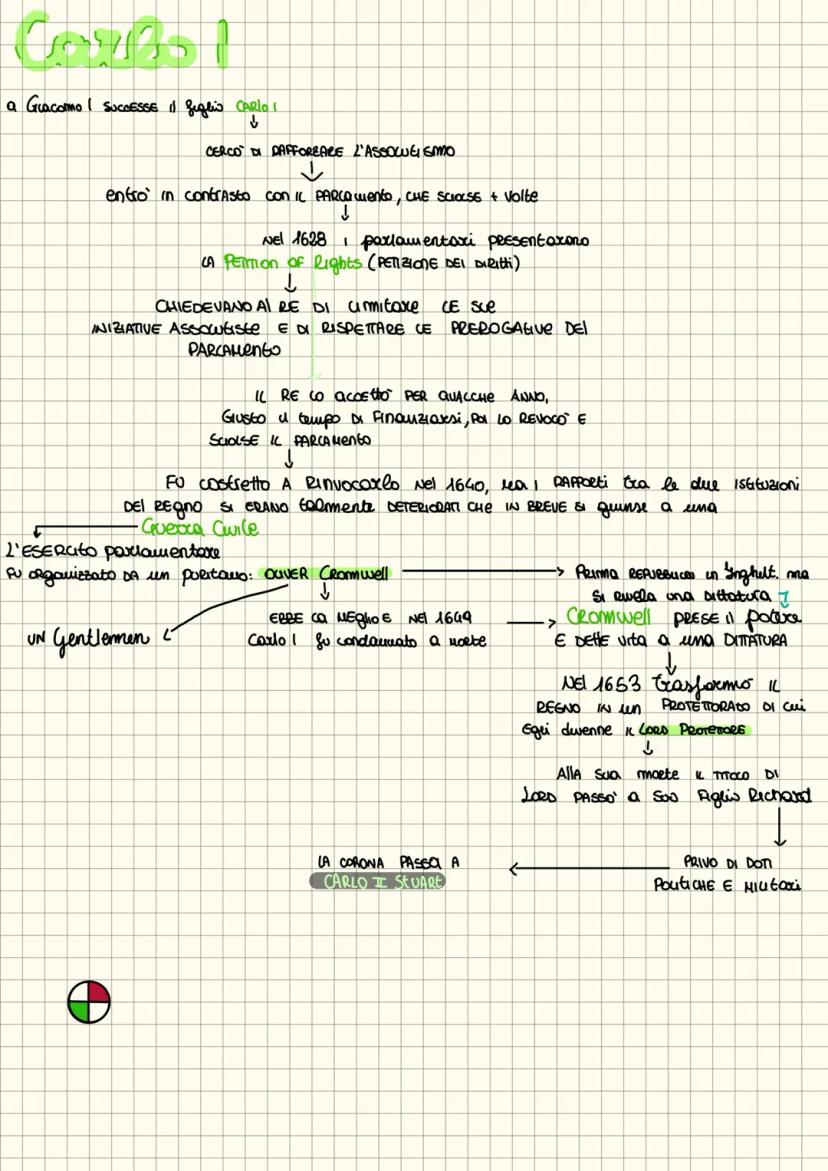 Carlo I
a Giacomo I SUCCESSE il figlio CARLO I
CERCÒ DI RAFFORZARE L'ASSOLUTISMO
entrò in contrasto con il PARLAMENTO, CHE SCIOLSE + volte
NEL 1628 i parlamentari PRESENTARONO
LA PETITION OF Rights (PETIZIONE DEI DIRITTI)
CHIEDEVANO AL RE DI LIMITARE LE SUE
INIZIATIVE ASSOLUTISTE E DI RISPETTARE LE PREROGATIVE DEL
PARLAMENTO
IL RE LO ACCETTÒ PER QUALCHE ANNO,
GIUSTO il tempo DI FINANZIARSI, POI LO REVOCÒ E
SCIOLSE IL PARLAMENTO
FU costretto A RINVOCARLO NEL 1640, ma i RAPPORTI tra le due ISTITUZIONI
DEL REGNO SI ERANO talmente DETERIORATI CHE IN BREVE SI giunse a una
Guerra Civile
L'ESERCITO parlamentare
FU organizzato DA un puritano: OLIVER Cromwell
PRIMA REPUBBLICA in Inghilt. ma
si rivela una DITTATURA
UN Gentlemen
EBBE LA MEGLIO E NEL 1649
Carlo I fu condannato a morte
CROMWELL PRESE il potere
E DETTE vita a una DITTATURA
NEL 1653 trasformò IL
REGNO IN un PROTETTORATO DI cui
Egli divenne IL LORD PROTETTORE
ALLA SUA morte IL TITOLO DI
LORD PASSÒ a SUO Figlio Richard
PRIVO DI DOTI
POLITICHE E MILITARI
LA CORONA PASSA A
CARLO II STUART